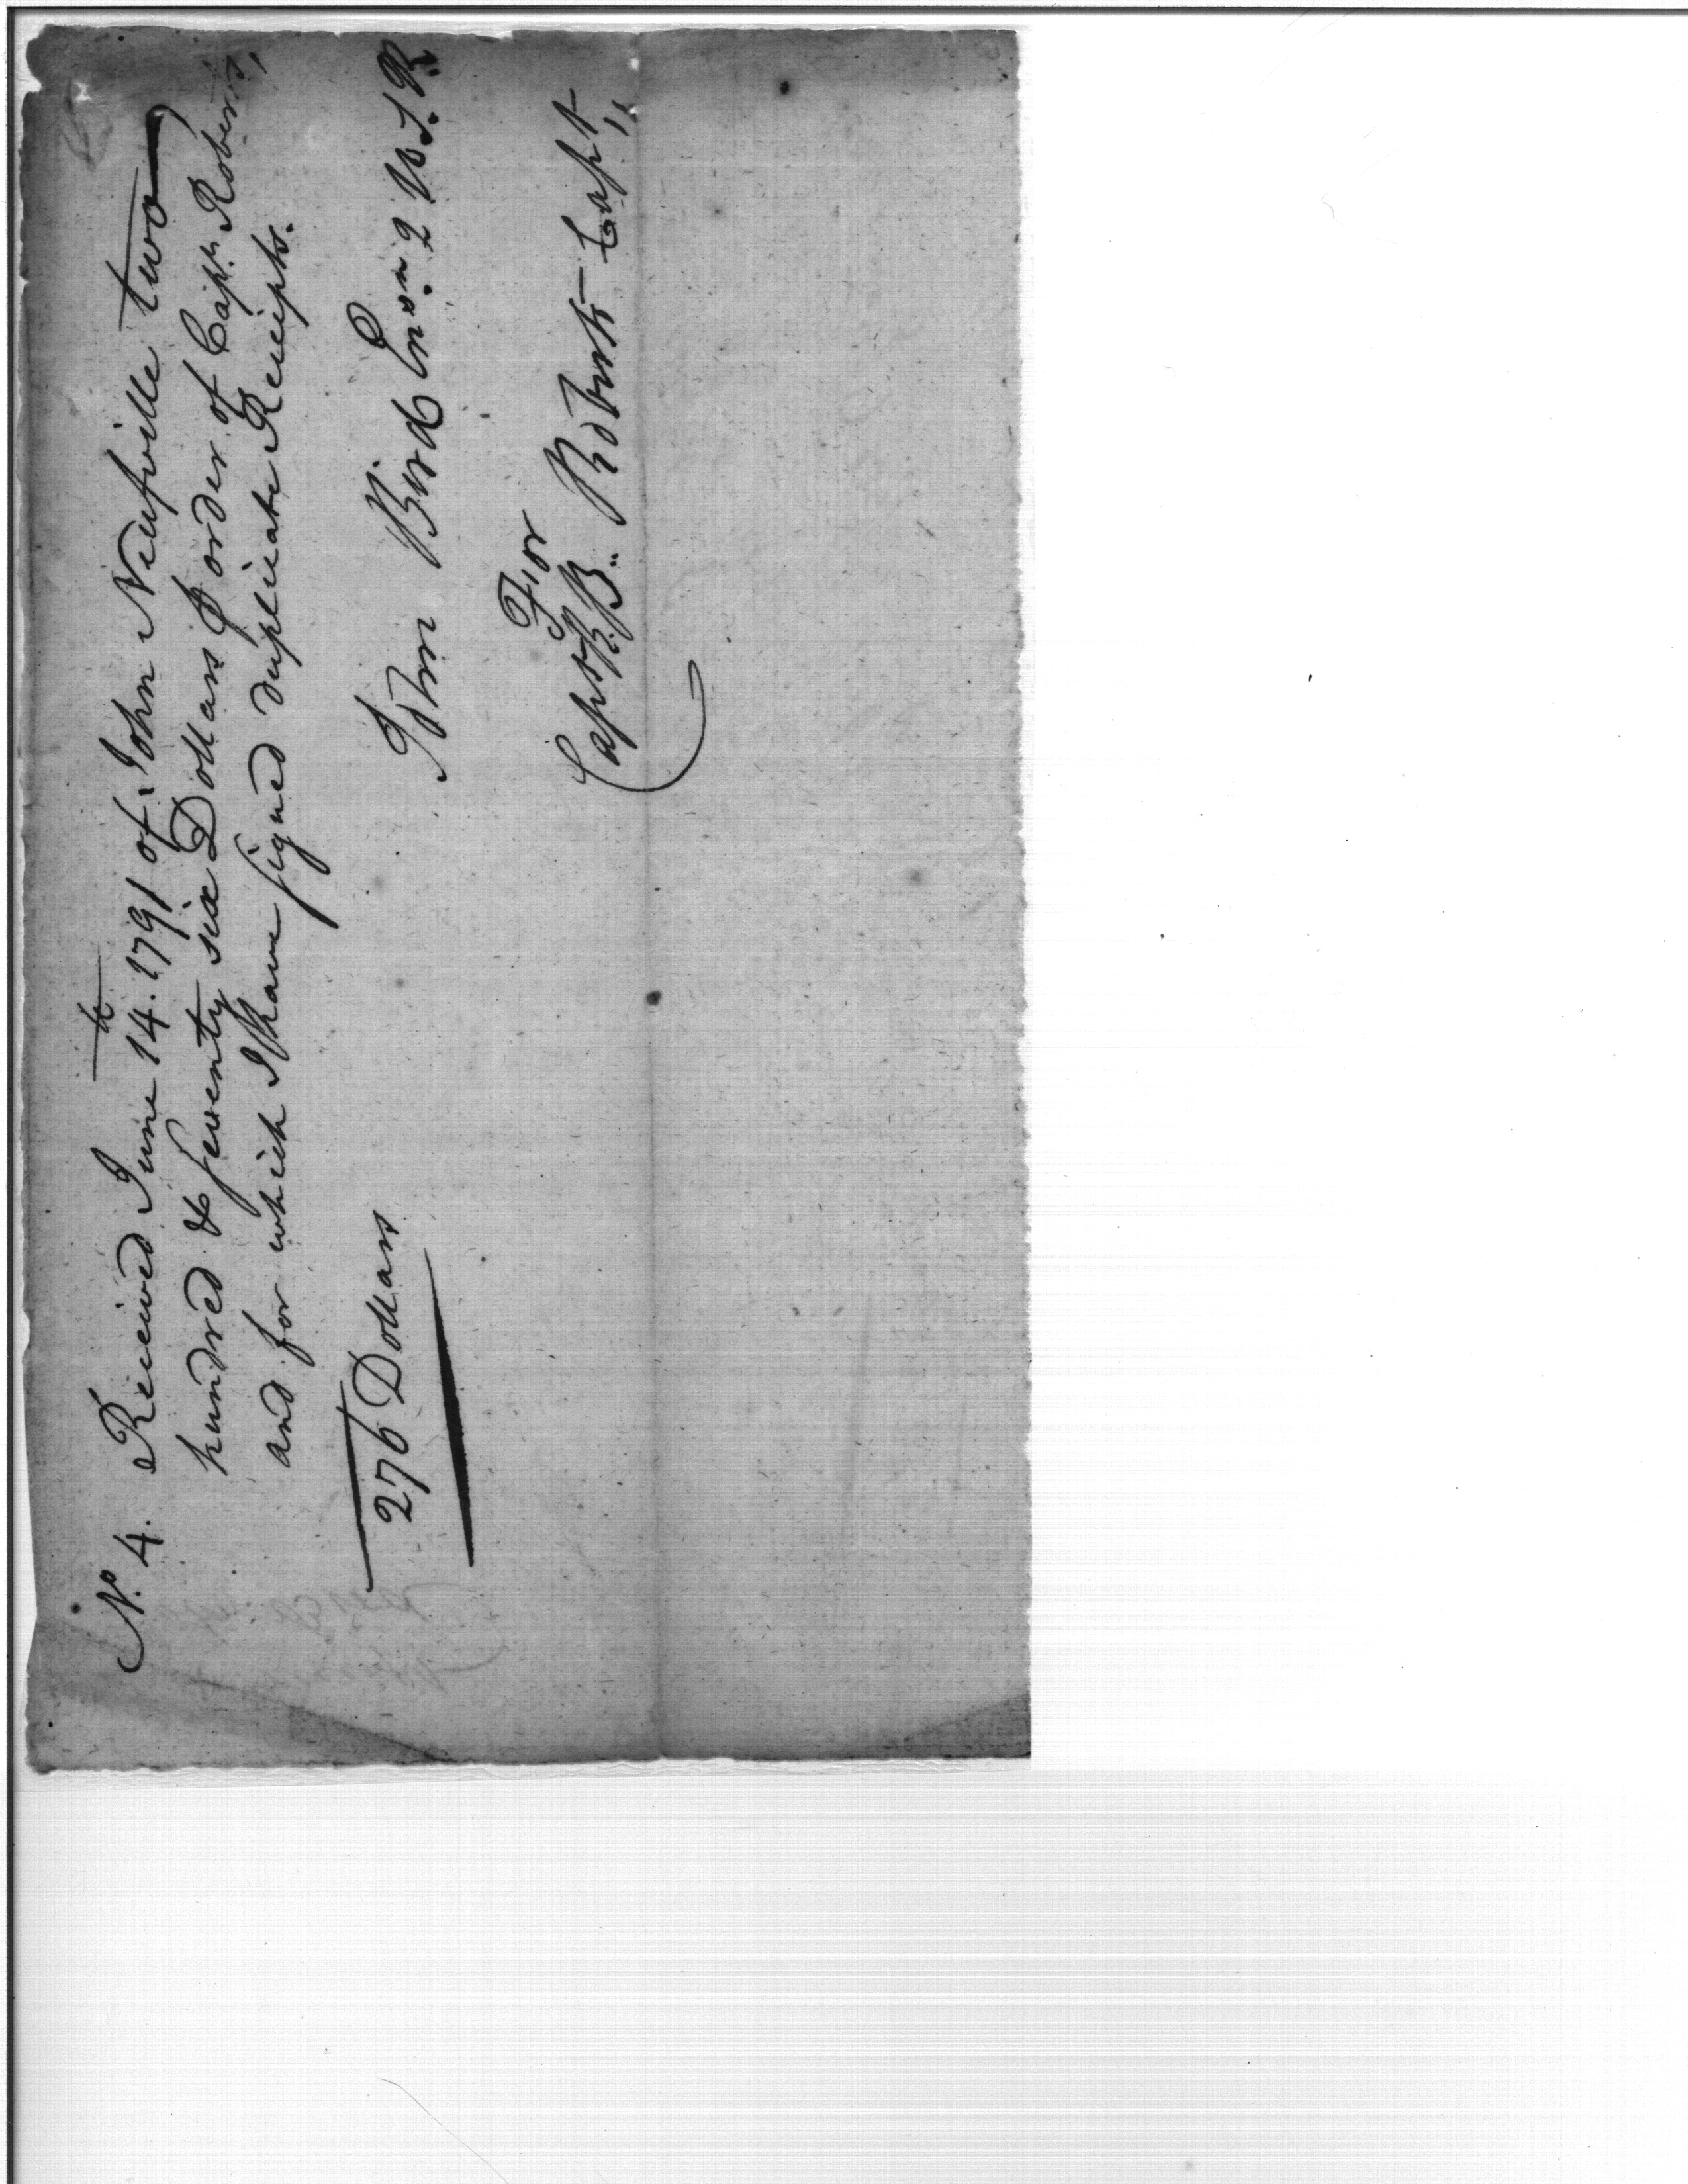 No. 4. Received June 14th. 1791 of John Neufville two
hundred & seventy six Dollars ⅌ order of Capt. Roberts,
and for which I have signed duplicate Receipts.
276 Dollars
John Bird Ensn. 2 U.S.R.
For
Capt R.B. Roberts Capt,